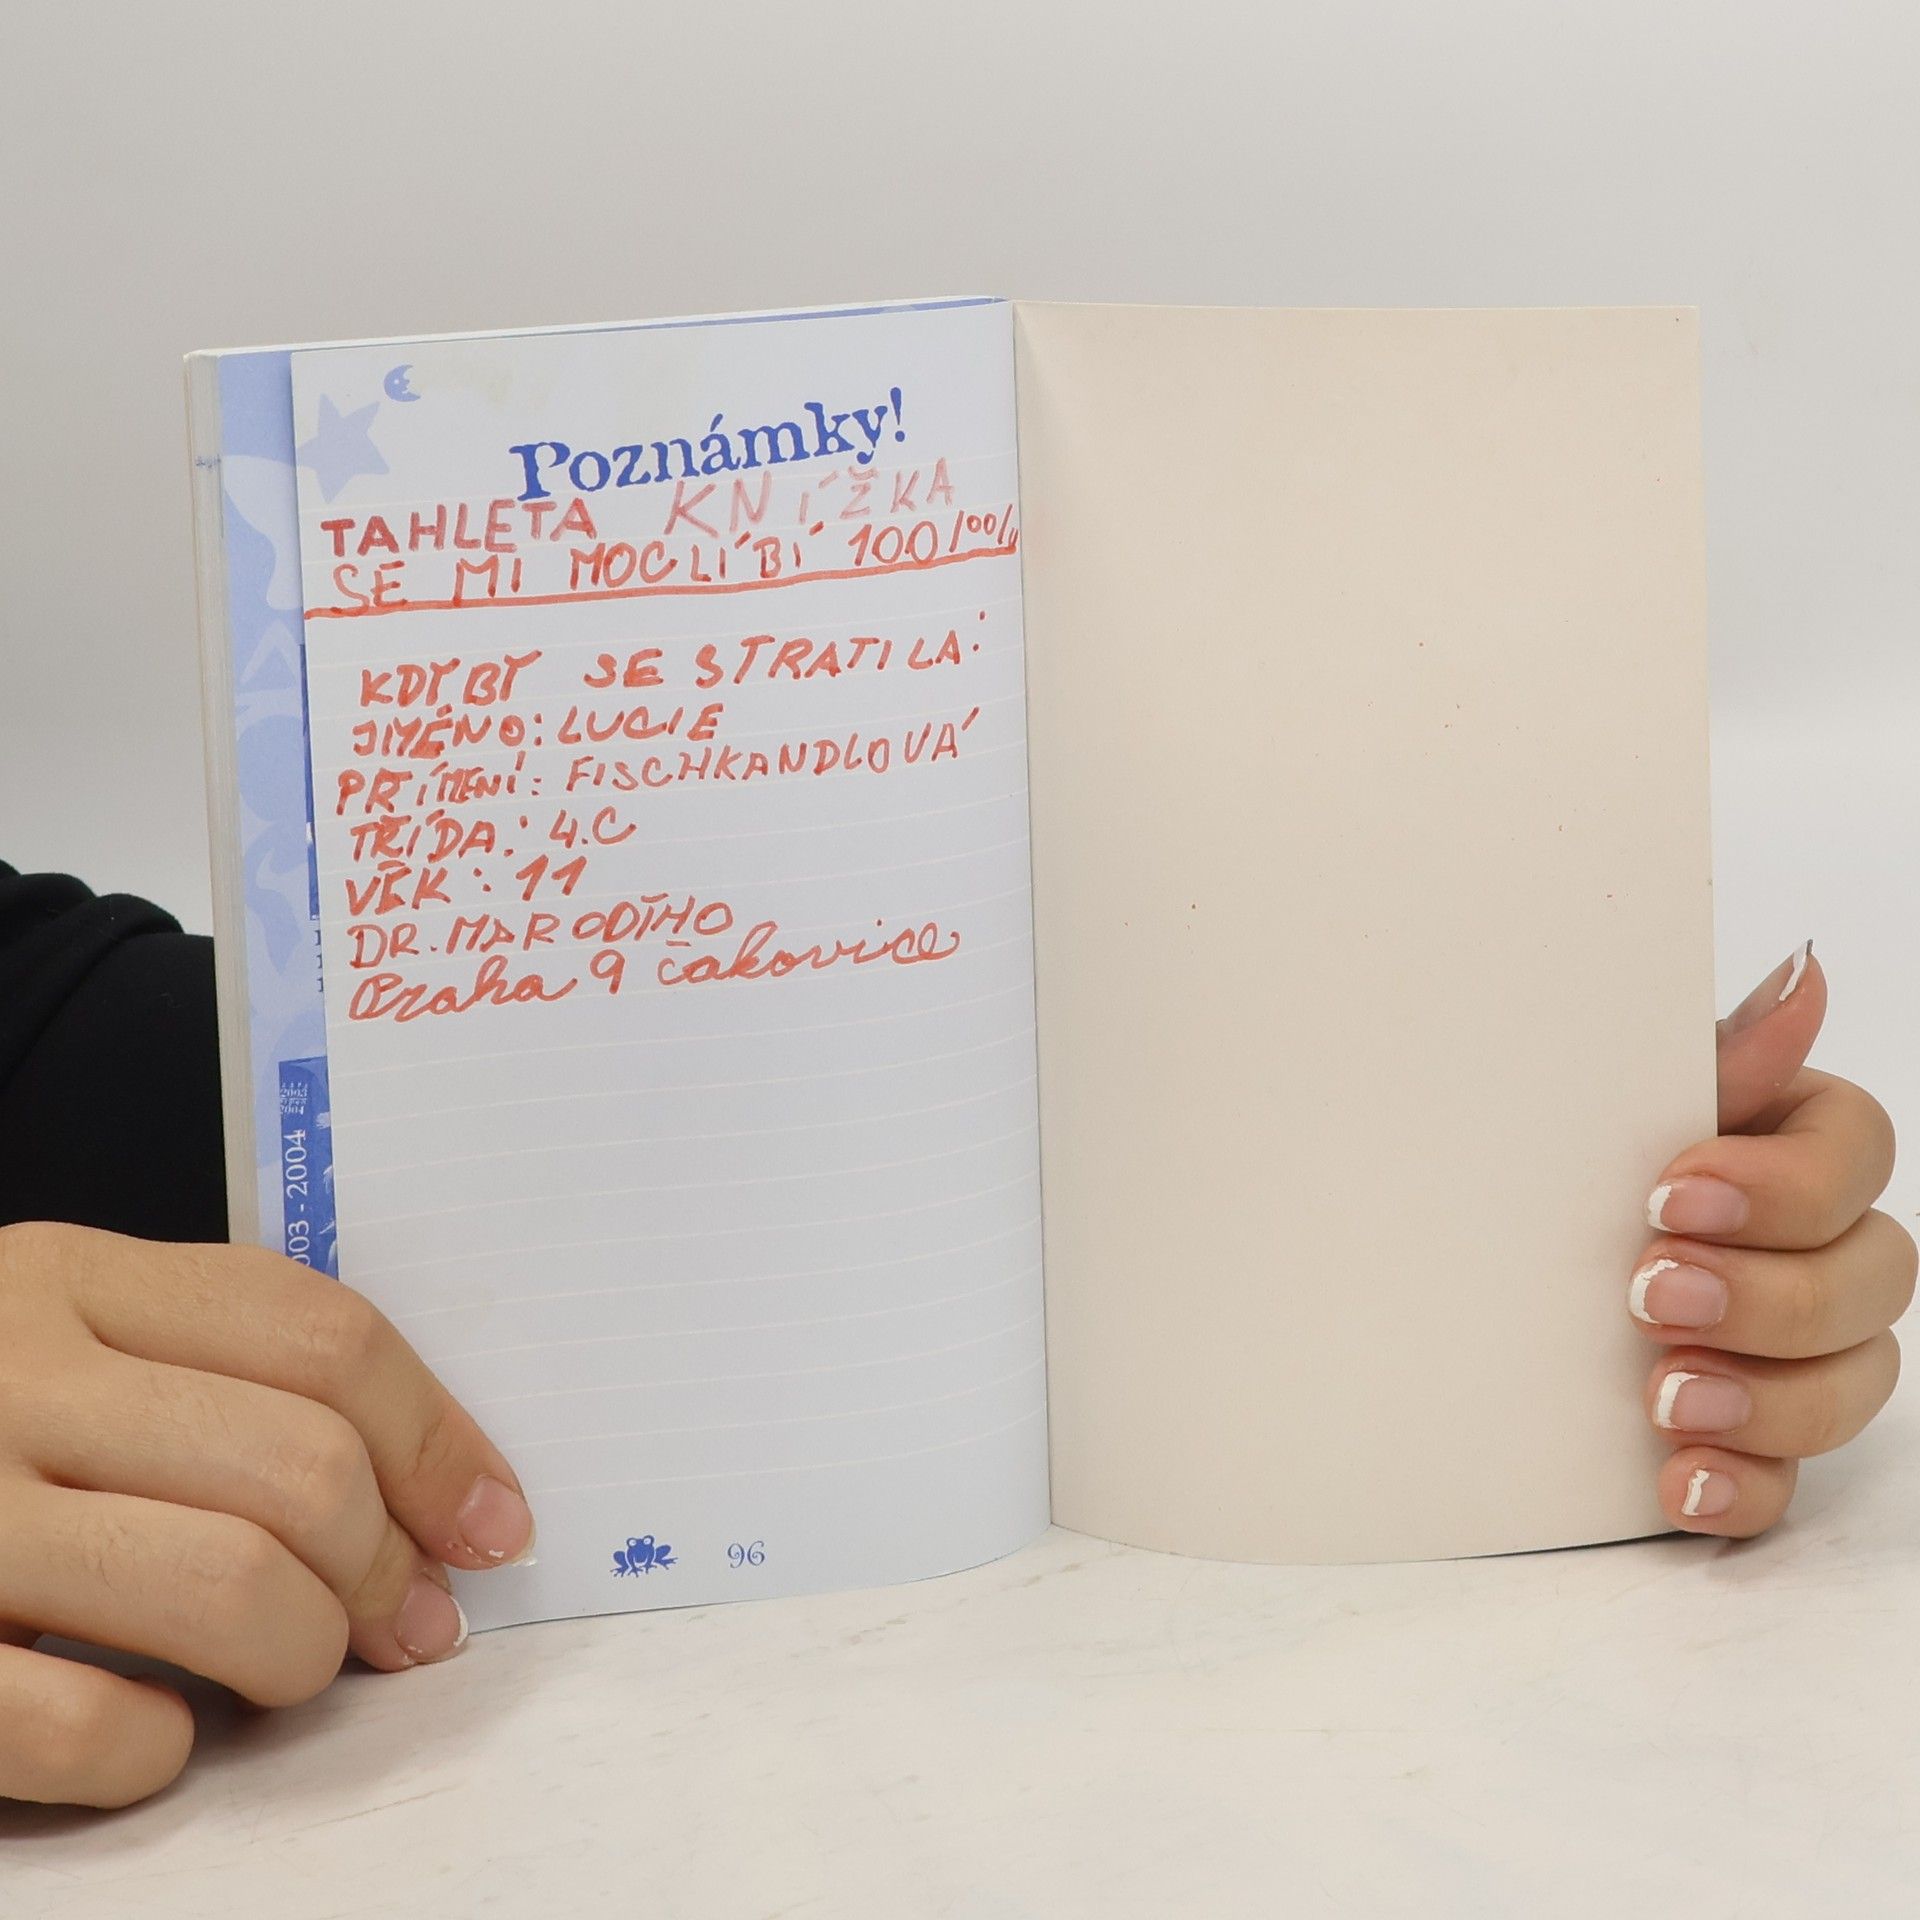 Poznámky!
TAHLETA KNÍŽKA
SE MI MOC LÍBÍ 100/00/
KDYBY SE STRATILA:
JMÉNO: LUCIE
PŘÍMENÍ: FISCHKANDLOVÁ
TŘÍDA: 4.C
VĚK: 11
DR. MARODÍHO
Praha 9 čakovice
2003
2004
003 - 2004
96